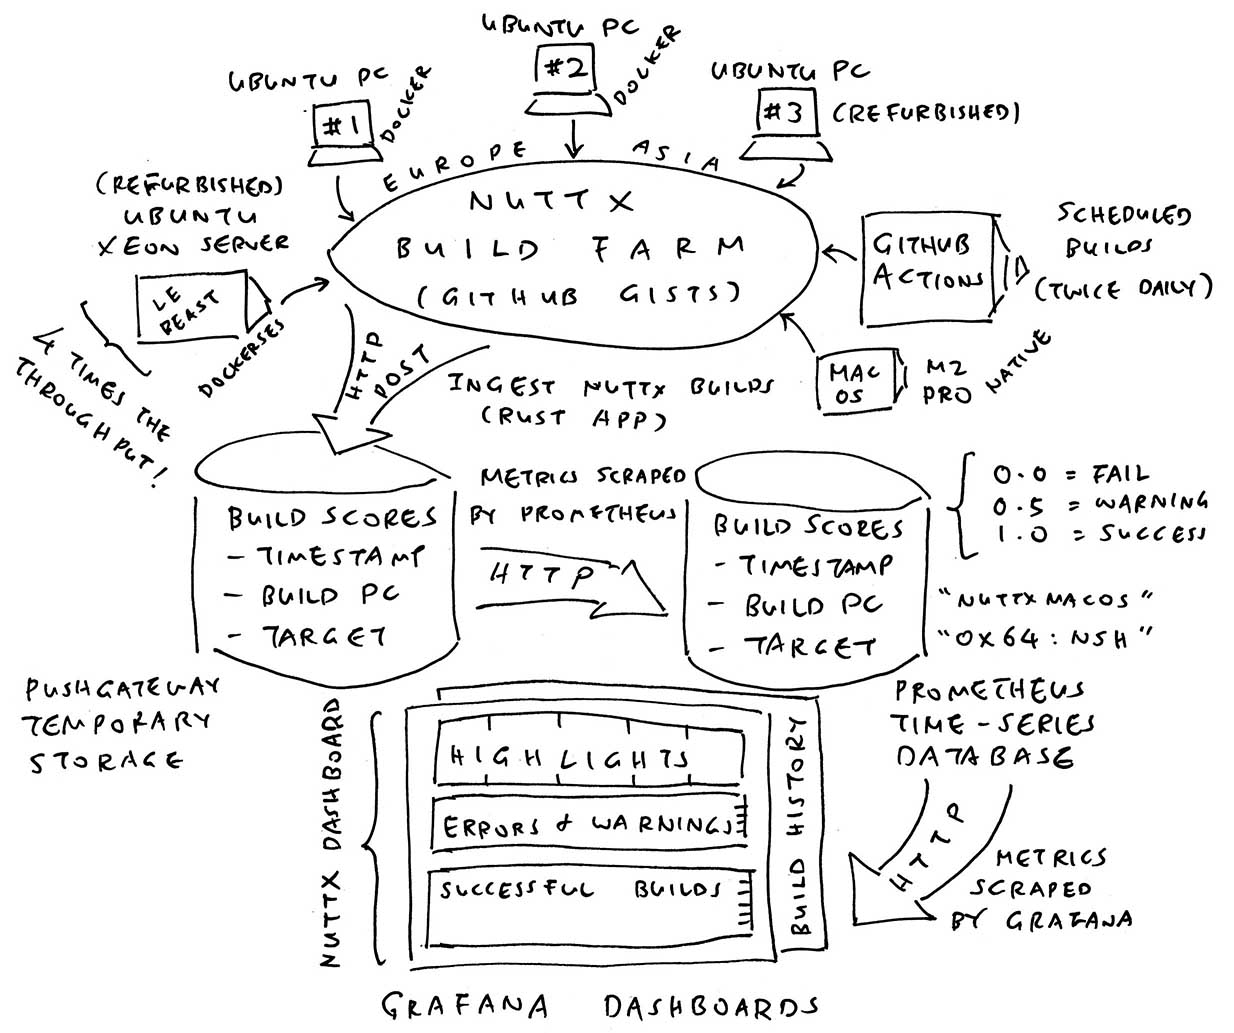 UBUNTU PC
#2
DOCKER
UBUNTU PC
#1
DOCKER
UBUNTU PC
#3
(REFURBISHED)
EUROPE
ASIA
NUTTX
BUILD FARM
(GITHUB GISTS)
(REFURBISHED)
UBUNTU
XEON SERVER
LE
BEAST
DOCKERSES
4 TIMES THE
THROUGHPUT!
GITHUB
ACTIONS
SCHEDULED
BUILDS
(TWICE DAILY)
MAC
OS
M2
PRO
NATIVE
HTTP
POST
INGEST NUTTX BUILDS
(RUST APP)
BUILD SCORES
- TIMESTAMP
- BUILD PC
- TARGET
PUSHGATEWAY
TEMPORARY
STORAGE
METRICS SCRAPED
BY PROMETHEUS
HTTP
BUILD SCORES
- TIMESTAMP
- BUILD PC
- TARGET
0.0 = FAIL
0.5 = WARNING
1.0 = SUCCESS
"NUTTXMACOS"
"OX64:NSH"
PROMETHEUS
TIME-SERIES
DATABASE
HTTP
METRICS
SCRAPED
BY GRAFANA
NUTTX DASHBOARD
HIGHLIGHTS
ERRORS & WARNINGS
SUCCESSFUL BUILDS
BUILD HISTORY
GRAFANA DASHBOARDS